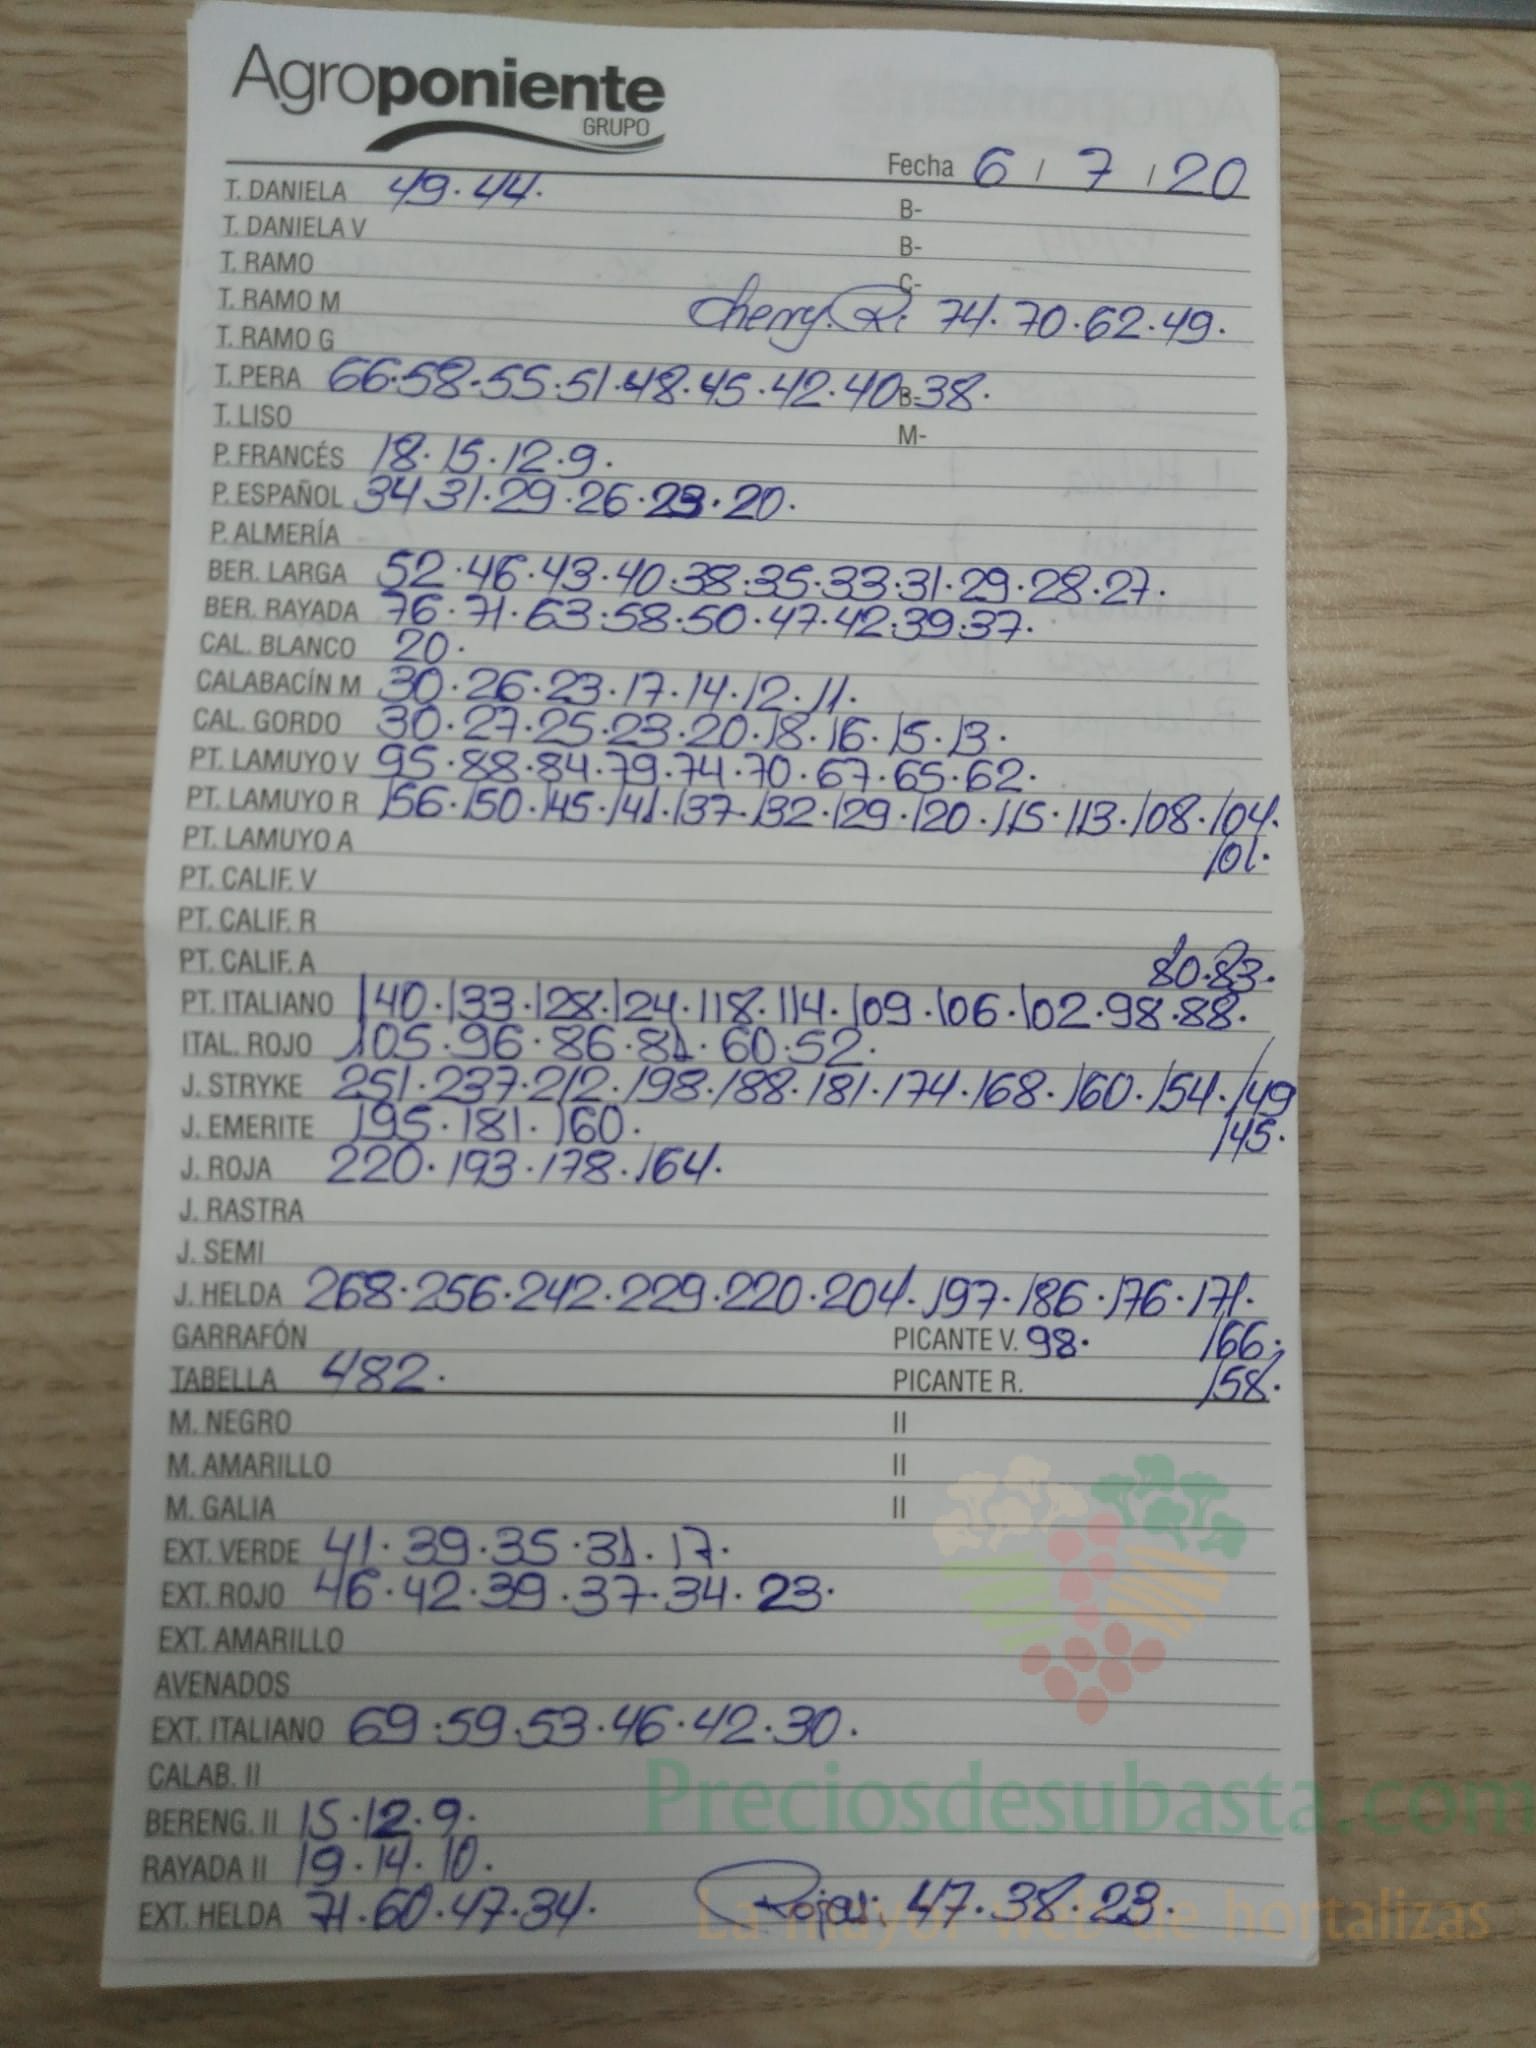 Agroponiente
GRUPO
Fecha 6 / 7 / 20
T. DANIELA 49·44· B-
T. DANIELA V B-
T. RAMO C-
T. RAMO M Cherry. R: 74·70·62·49·
T. RAMO G
T. PERA 66·58·55·51·48·45·42·40·38· B-
T. LISO M-
P. FRANCÉS 18·15·12·9·
P. ESPAÑOL 34·31·29·26·23·20·
P. ALMERÍA
BER. LARGA 52·46·43·40·38·35·33·31·29·28·27·
BER. RAYADA 76·71·63·58·50·47·42·39·37·
CAL. BLANCO 20·
CALABACÍN M 30·26·23·17·14·12·11·
CAL. GORDO 30·27·25·23·20·18·16·15·13·
PT. LAMUYO V 95·88·84·79·74·70·67·65·62·
PT. LAMUYO R 156·150·145·141·137·132·129·120·115·113·108·104·
PT. LAMUYO A 101·
PT. CALIF. V
PT. CALIF. R
PT. CALIF. A 80·83·
PT. ITALIANO 140·133·128·124·118·114·109·106·102·98·88·
ITAL. ROJO 105·96·86·81·60·52·
J. STRYKE 251·237·212·198·188·181·174·168·160·154·149
J. EMERITE 195·181·160· 145·
J. ROJA 220·193·178·164·
J. RASTRA
J. SEMI
J. HELDA 268·256·242·229·220·204·197·186·176·171·
GARRAFÓN PICANTE V. 98· 166·
TABELLA 482· PICANTE R. 158·
M. NEGRO II
M. AMARILLO II
M. GALIA II
EXT. VERDE 41·39·35·31·17·
EXT. ROJO 46·42·39·37·34·23·
EXT. AMARILLO
AVENADOS
EXT. ITALIANO 69·59·53·46·42·30·
CALAB. II
Preciosdesubasta.com
BERENG. II 15·12·9·
RAYADA II 19·14·10·
EXT. HELDA 71·60·47·34· Rojas: 47·38·23·
La mayor web de hortalizas